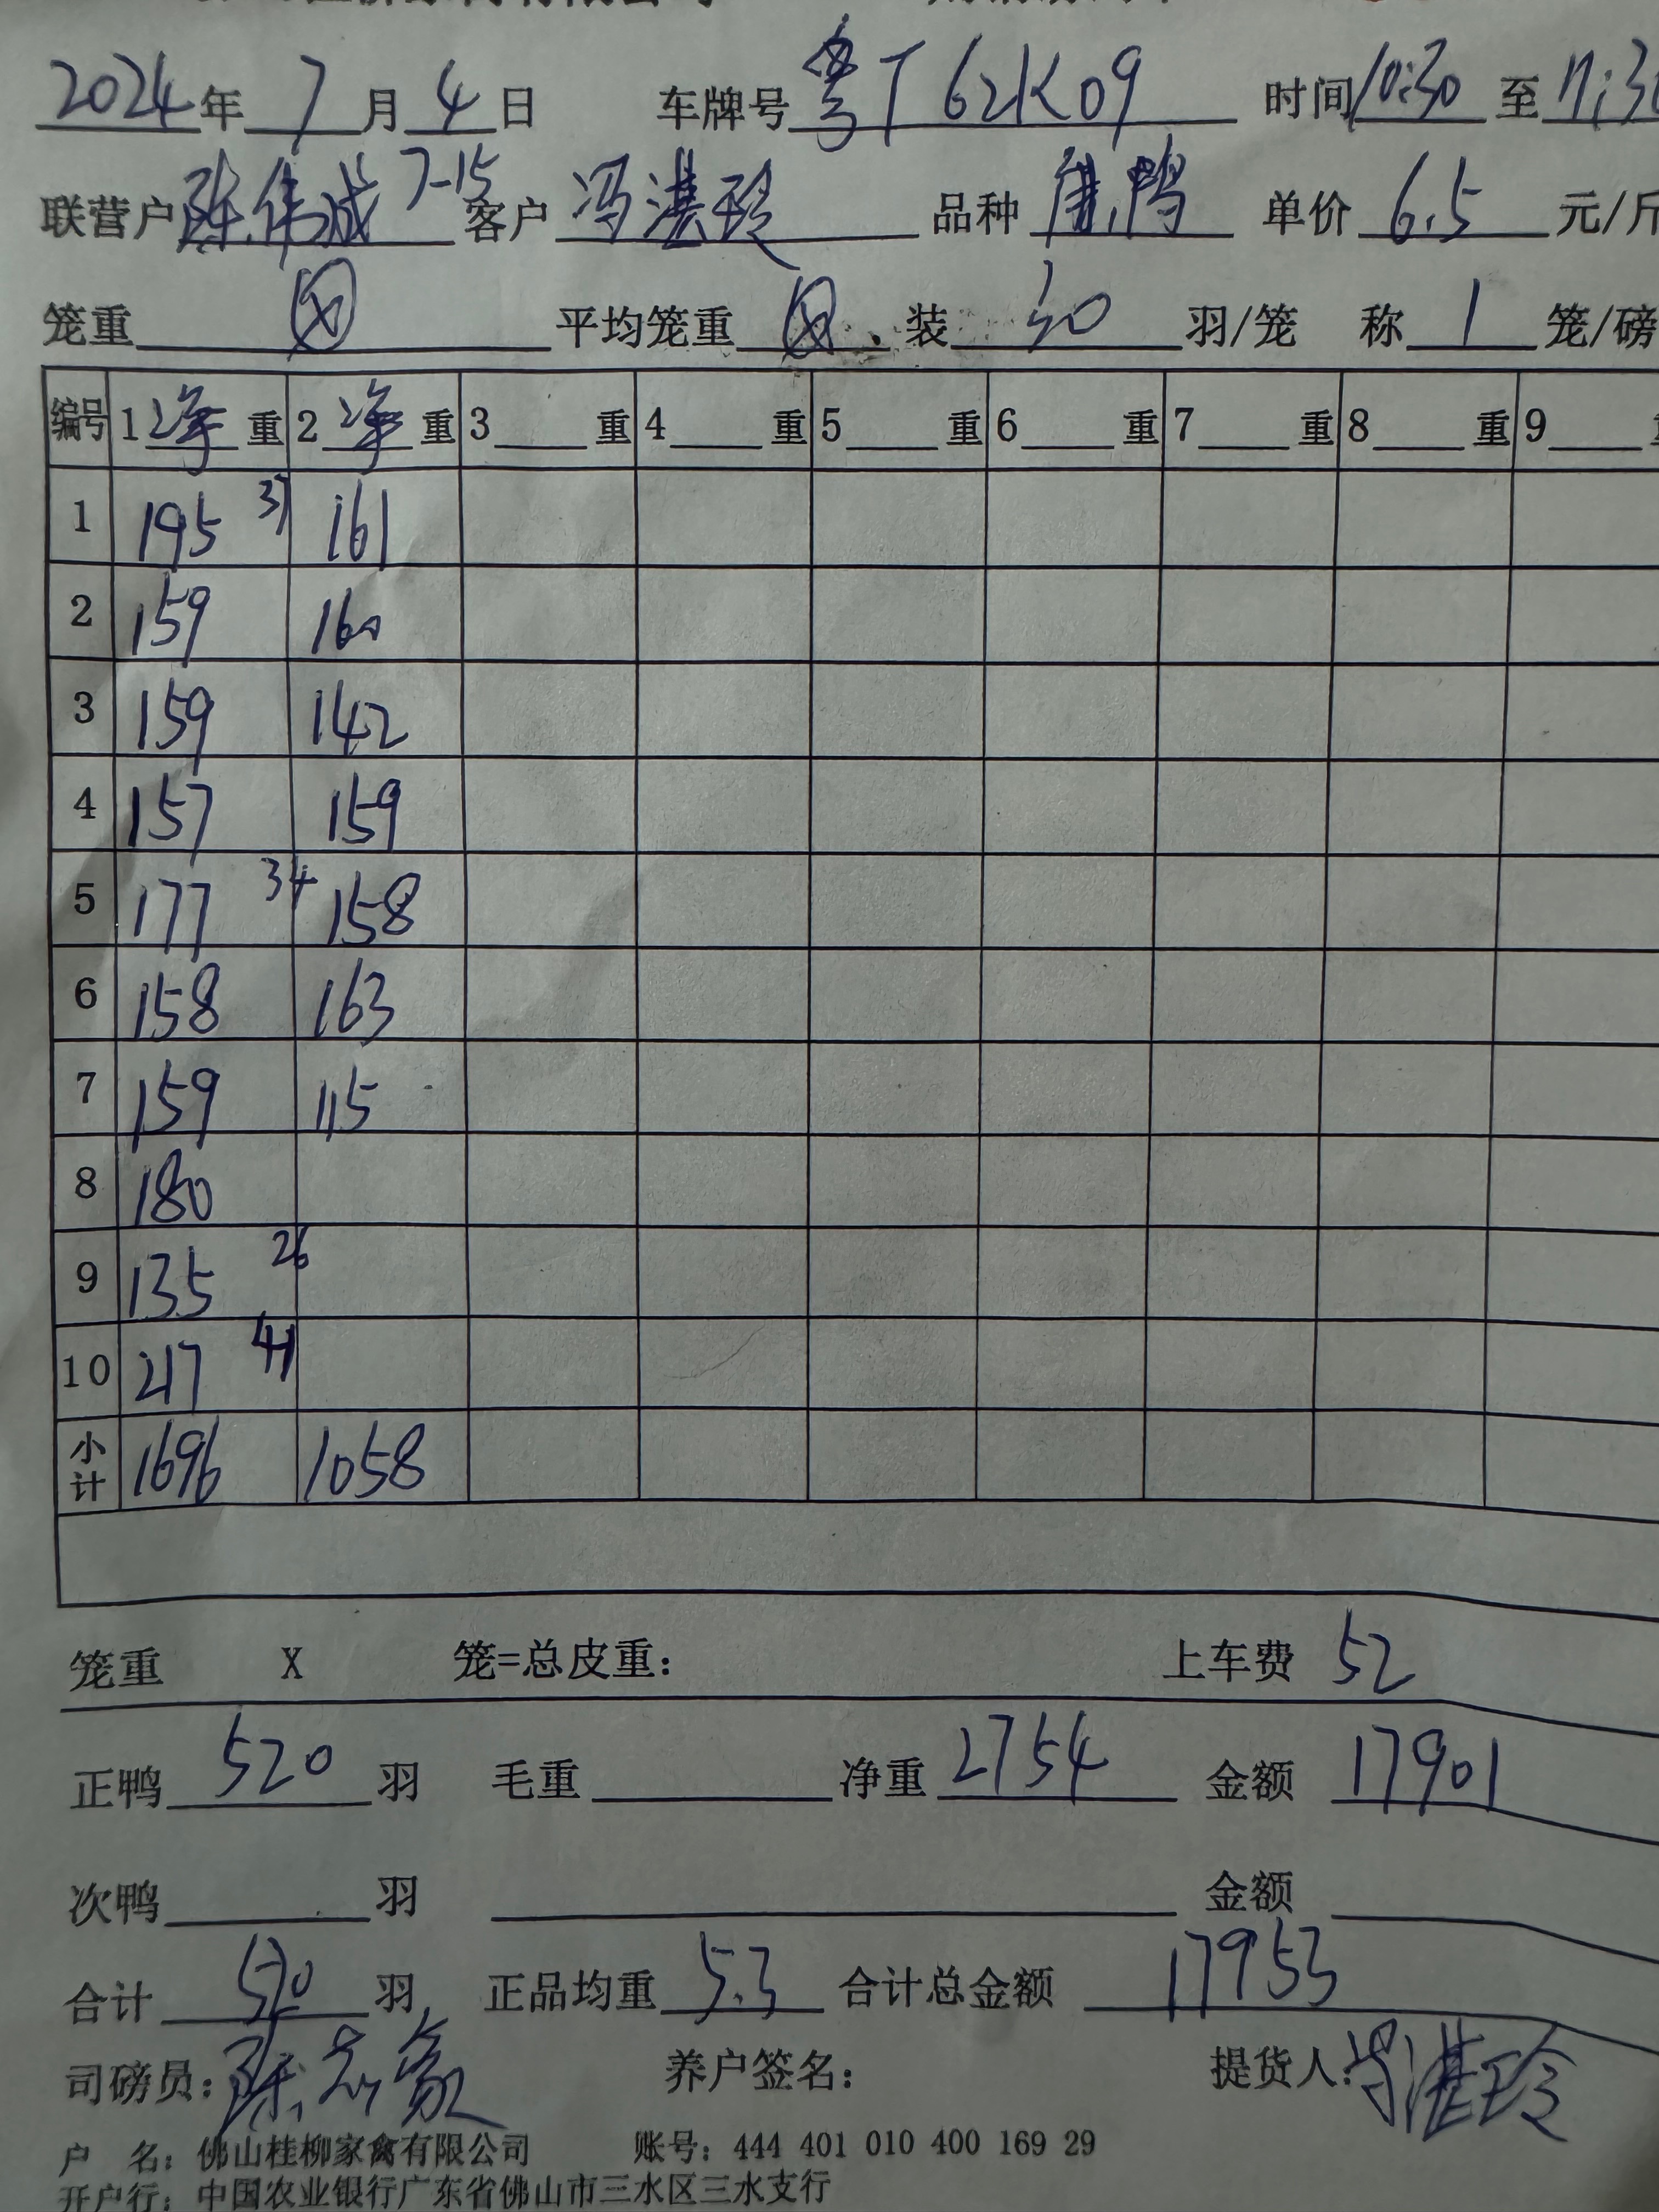 2024年 7 月 4 日 车牌号 粤T 62K09 时间 10:30 至 11:30
联营户 陈伟成 7-15 客户 冯湛玲 品种 单价 6.5 元/斤
笼重 平均笼重 、装 30 羽/笼 称 1 笼/磅
编号 1 净 重 2 净 重 3 重 4 重 5 重 6 重 7 重 8 重 9
1 195 37 161
2 159 160
3 159 142
4 157 159
5 177 34 158
6 158 163
7 159 115
8 180
9 135 26
10 217 41
小计 1696 1058
笼重 X 笼=总皮重: 上车费 52
正鸭 520 羽 毛重 净重 2754 金额 17901
次鸭 羽 金额
合计 520 羽, 正品均重 5.3 合计总金额 17953
司磅员: 陈志豪 养户签名: 提货人: 冯湛玲
户 名: 佛山桂柳家禽有限公司 账号: 444 401 010 400 169 29
开户行: 中国农业银行广东省佛山市三水区三水支行